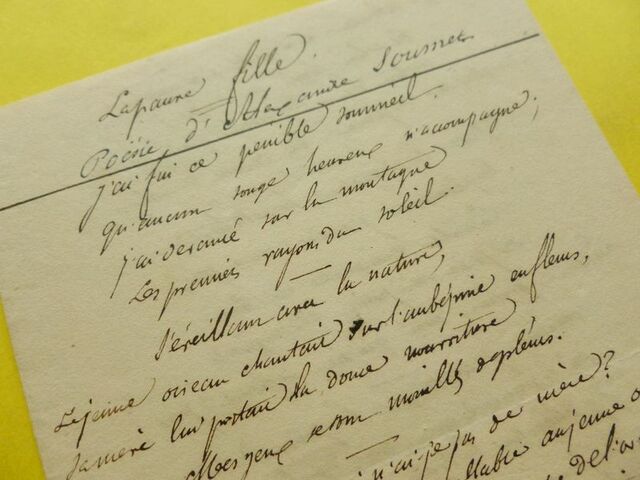 La pauvre fille.
Poësie d'Alexandre Soumet
j'ai fui ce penible sommeil.
qu'aucun songe heureux n'accompagne;
j'ai devancé sur la montagne
Les premiers rayons du soleil.
S'éveillant avec la nature,
Le jeune oiseau chantait sur l'aubépine en fleurs,
Sa mere lui portait la douce nourriture
Mes yeux se sont mouillés de pleurs.
n'ai-je pas de mère?